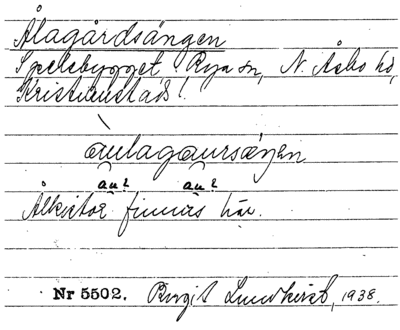 Ålagårdsängen
Spelebygget Rya sn, N. Åsbo hd,
Kristianstads l.
àulagaursængen
au? au?
Ålkistor finnas här.
Nr 5502. Birgit Lundkvist, 1938.